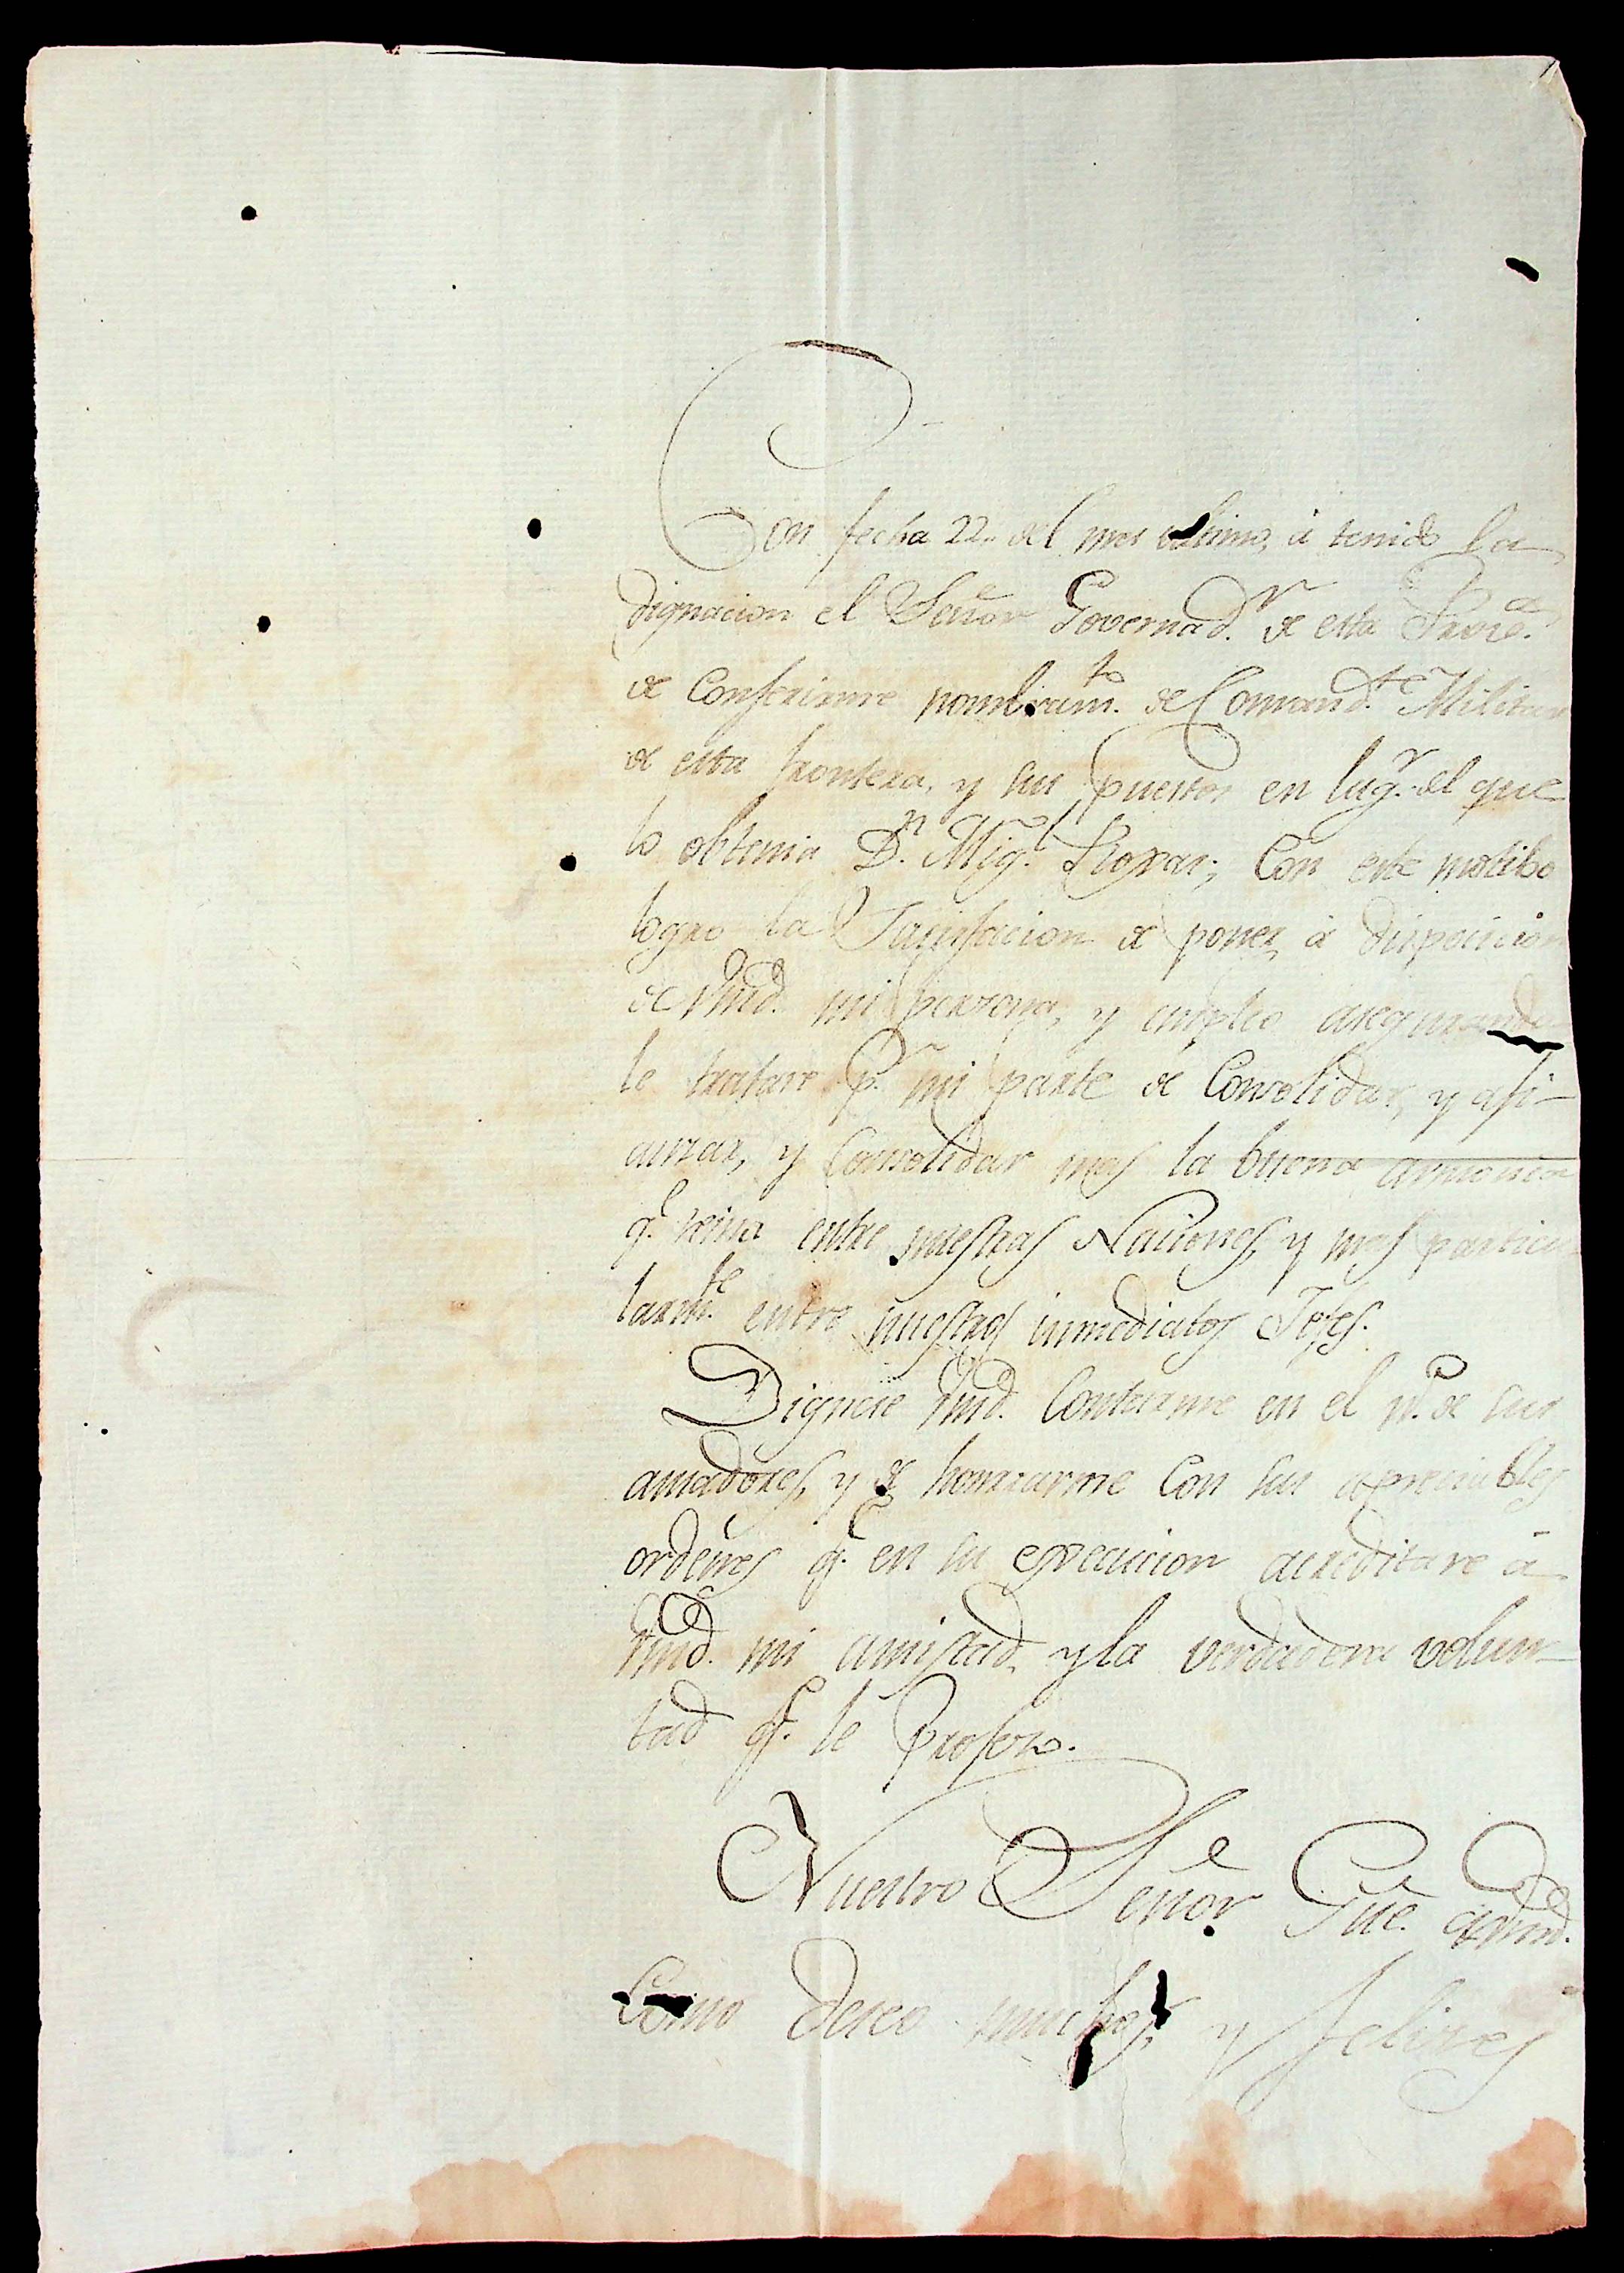 Con fecha 22,, del mes ultimo, á tenido la
dignacion el Señor Governad.r de esta Prov.a
de Conferirme nombram.to de Comand.te Militar
de esta frontera, y sus puertos en lug.r del que
lo obtenia D.n Mig.l Roxas; Con este motibo
logro la Satisfacion de poner, á disposicion
de Vmd. mi persona, y empleo asegurando
le tratare p.r mi parte de Consolidar, y afi-
ansar, y Consolidar mas la buena armonia
q.e reina entre nuestras Naciones, y mas particu
larm.te entre nuestros inmediatos Jefes.
Dignese Vmd. Contarme en el n.o de sus
amadores, y de honrrarme Con sus apreciables
ordenes q.e en su execucion acreditare á
Vmd. mi amistad, y la verdadera volun-
tad q.e le Profeso.
Nuestro Señor Gue. a Vmd.
Como deseo muchos, y felices